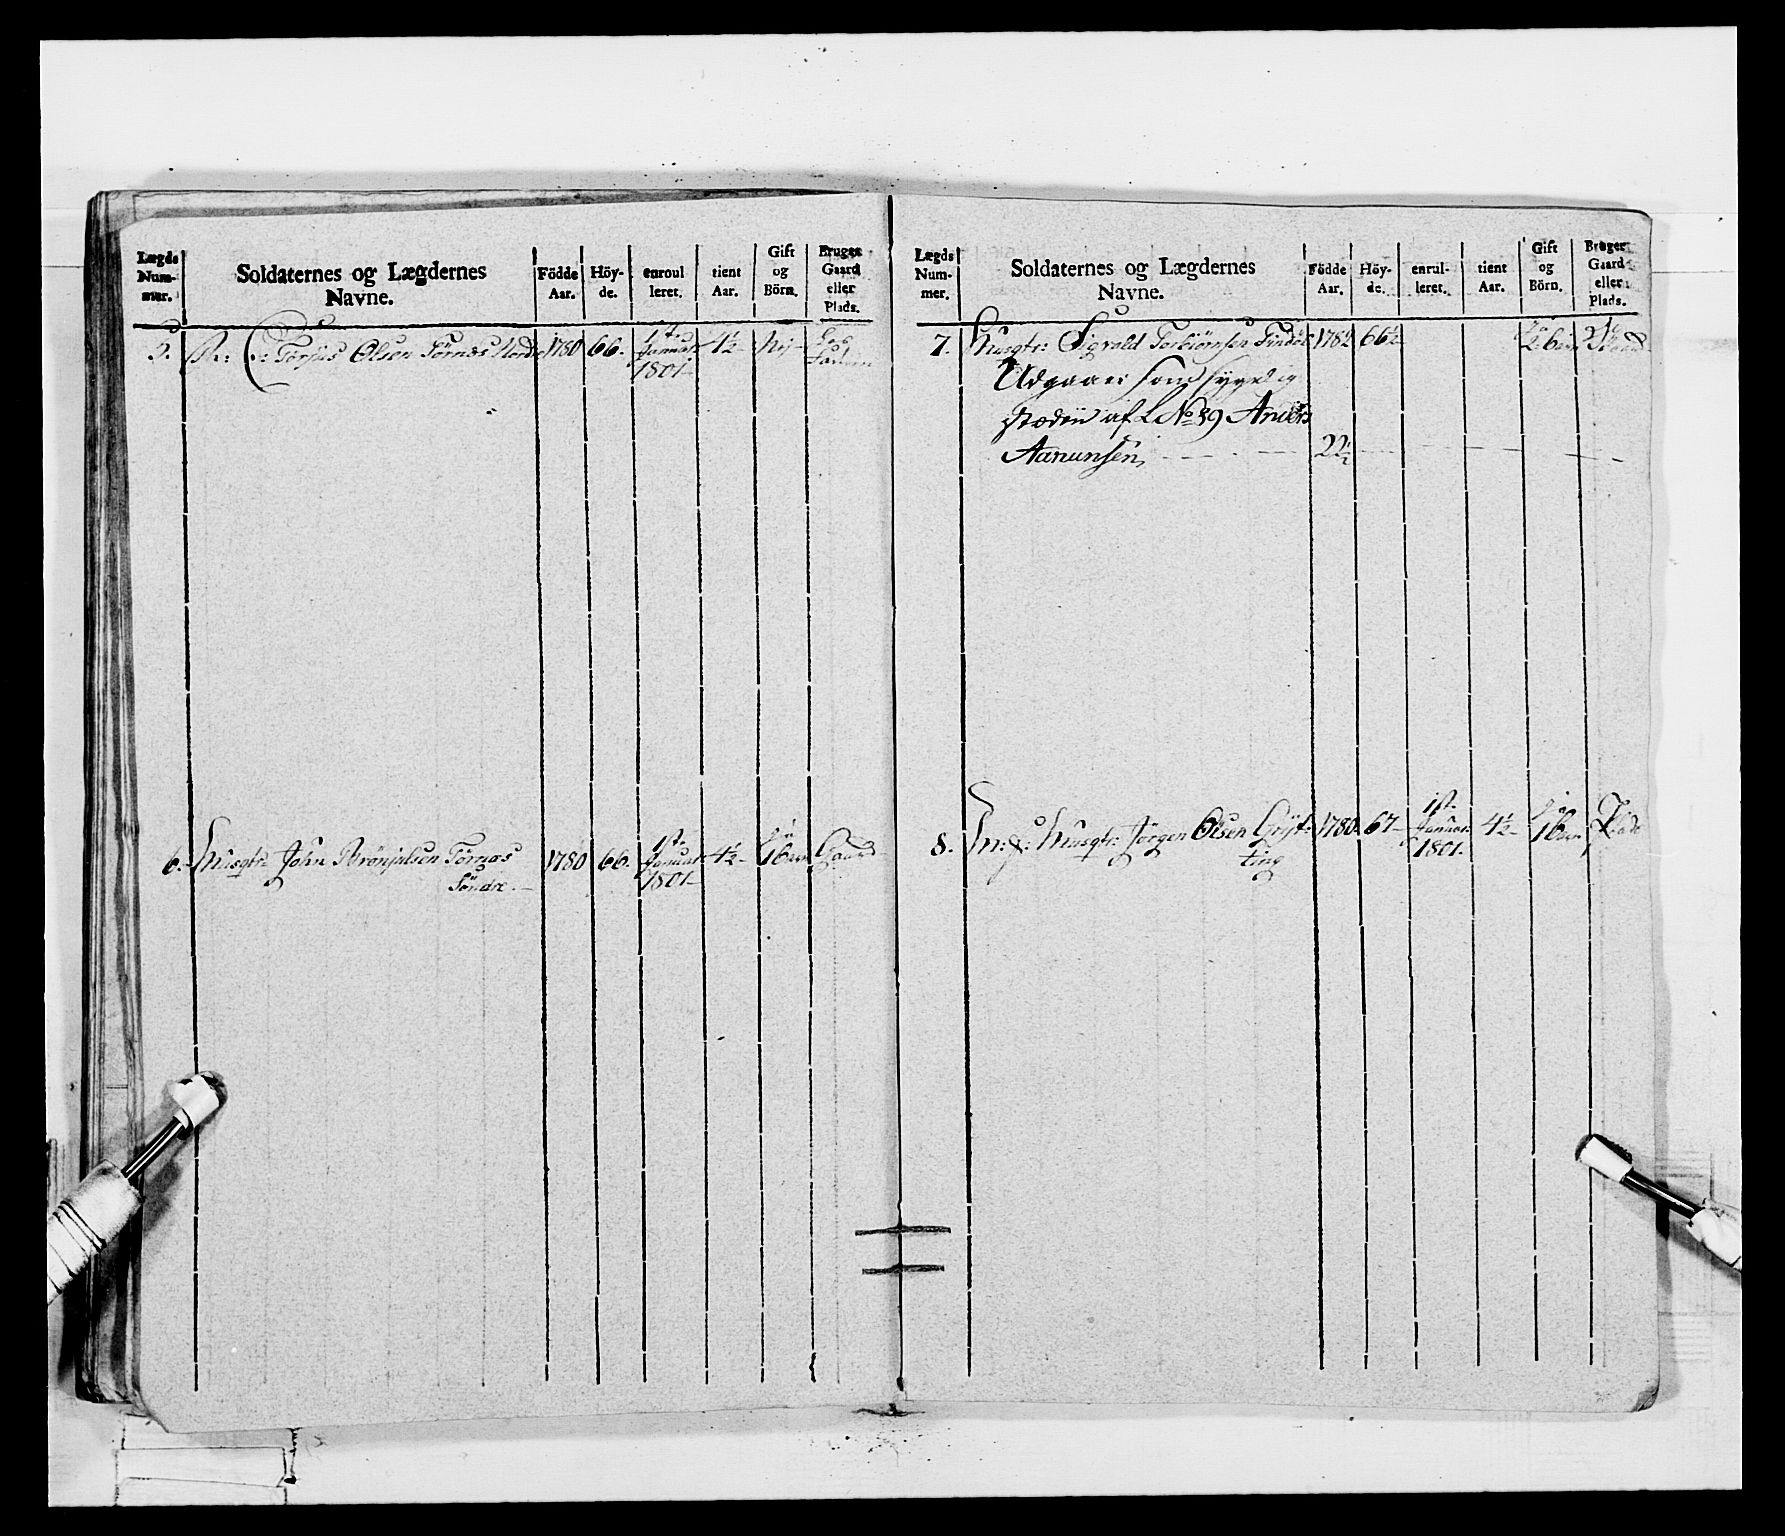 Lægds Num- mer.
Soldaternes og Lægdernes Navne.
Födde Aar.
Höy- de.
enroul leret.
tient Aar.
Gift og Börn.
Bruger Gaard eller Plads.
5. Torjus Olsen Törnes Nordre 1780 66. 1st. Januar 1801 4½ Nej
6. Musqtr: John Brönjulsen Törnes Söndre 1780 66. 1st. Januar 1801 4½ Ja 1 barn Gaard
Lægds Num- mer.
Soldaternes og Lægdernes Navne.
Födde Aar.
Höy- de.
enrul- leret.
tient Aar.
Gift og Börn.
Bruger Gaard eller Plads.
7. Musqtr: Sigvald Torbiörnsen 66½ Ja 2 börn
Udgaaer som sygelig
steden af L No 39 Anders
Aanunsen 22½
8. Musqtr: Jörgen Olsen Gryt- 1780 67 1st. Januar 1801. 4½ Ja 1 barn Plads
ting